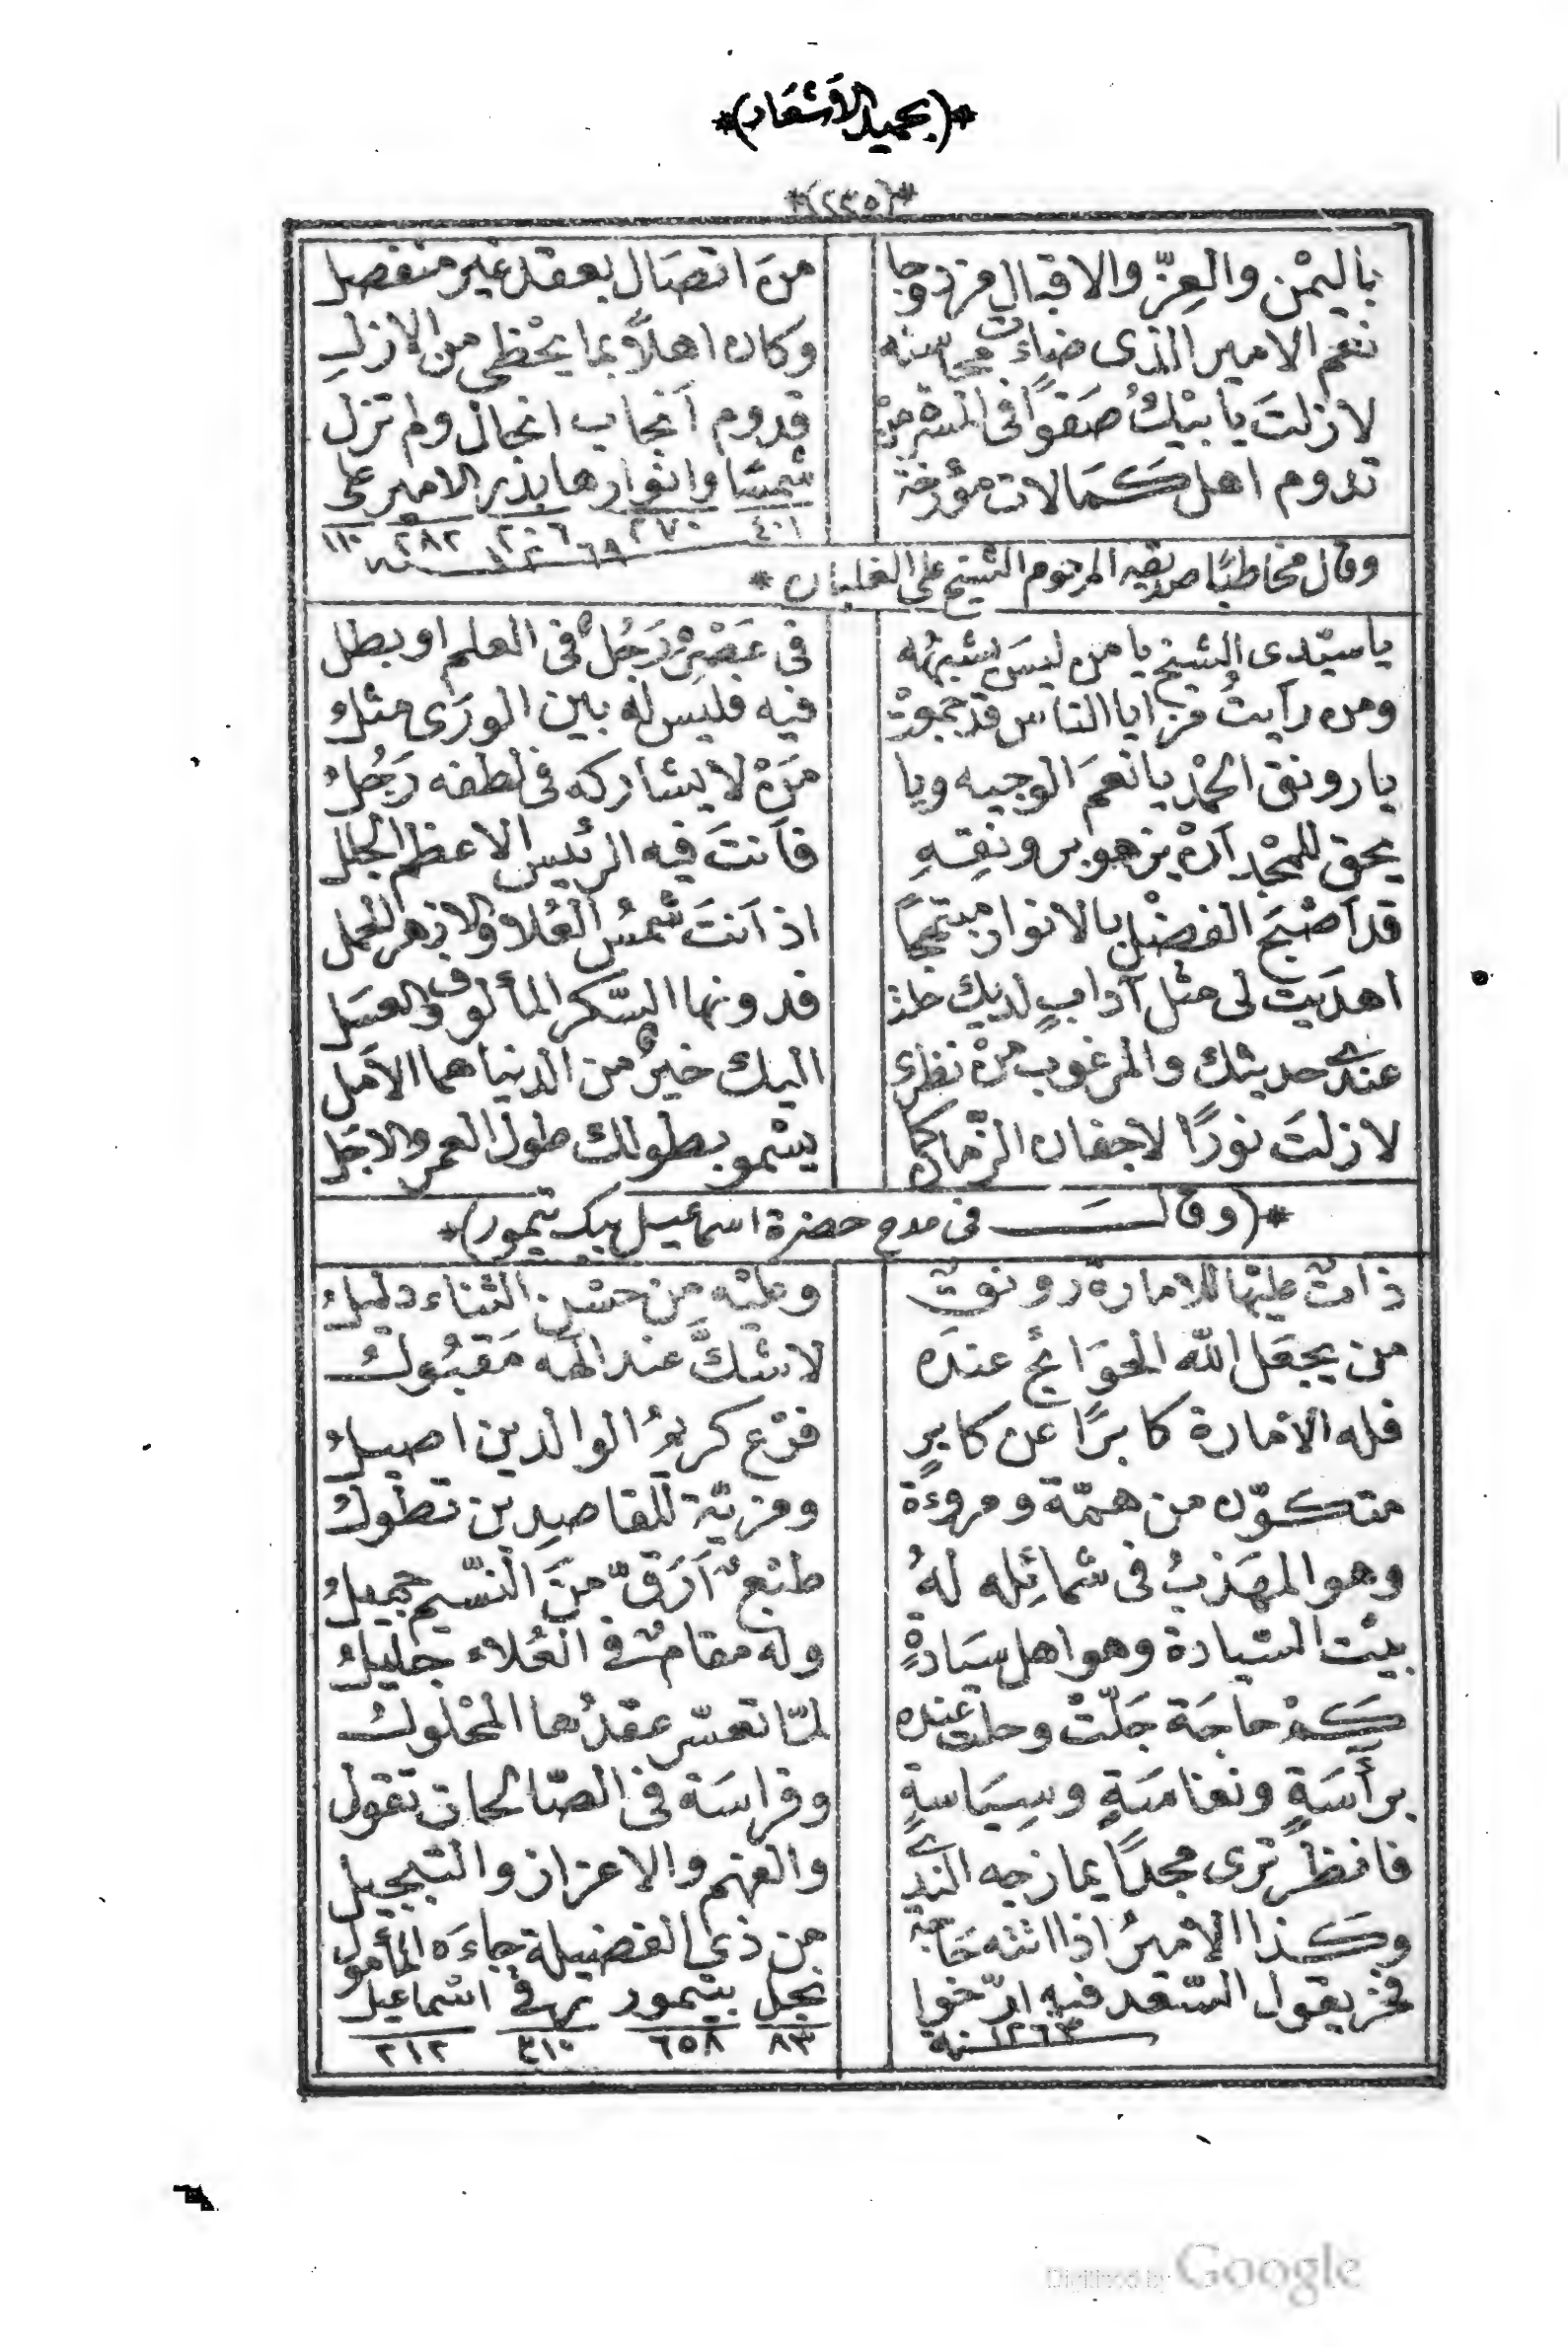 *(بحميد الأشعار)*
*(٢٣٥)*
باليمْن والعِزّ والاقبال مزدوجا منَ اتصَال بعقد غير منفصل
نعم الامير الذى ضاءت محاسنه وكان اهلاً بما يحْظى من الازلِ
لازلتَ يا بيْكُ صَفوًا فى المسرّة من قدوم آنجاب انجال ولم تزل
تدوم اهل كمالات مؤرخة شمسًا وانوارها بدر الامير على
٤٠١ ٢٧٠ ٢٠٦ ٢٨٢ ١١٠
وقال مخاطبًا صديقه المرحوم الشيخ على الغلبان *
ياسيّدى الشيخ يا من ليسَ يشبهُه فى عَصْرِهْ رَجُلٌ فى العلم او بطل
ومن رآيتُ مزايا الناس قد جمعتْ فيه فليس له بين الورَى مثلُ
يارونق الحمْد يا نعمَ الوجيه ويا مَنْ لا يشاركه فى لطفه رَجُلُ
يحق للمجْد آنْ يزهو برونقِهِ فآنتَ فيه الرئيس الاعظم الجلل
قد آصْبَحَ الفضْل بالانوار مبتهجًا اذ آنتَ شمسُ العُلا والازهر العمل
اهدَيت لى مثل آدابٍ لديك فدونها السّكر المألوف والعسَل
عندى حديثك والمرغوب منْ نظرى اليك خيرٌ من الدنيا هما الآمل
لازلتَ نورًا لاجفان الزّمان كما يسْمو بطولك طول العمر والاجَل
*(وقالــــ فى مدح حضرة اسماعيل بيك تيمور)*
ذاتٌ عليْها للامارة رونقٌ وعليْه من حسْن الثناء دليلُ
من يجعَل الله الحوَائج عندَه لاشكَّ عند الٰهه مَقبُولُ
فله الامارة كابرًا عن كابرٍ فرْع كريمُ الوالدين اصيلُ
متكوّن من همّة ومروءة ومزيّة للقاصدِين تطولُ
وهو المهَذبُ فى شمائِله لهُ طبْع آرَقّ منَ النسّيم جميلُ
بيْت السّيادة وهو اهل سيَادةٍ وله مقامٌ فى العُلاء جليلُ
كمْ حاجَة جَلّتْ وحلت عنده لمّا تعسّر عقدُها المحْلولُ
برآسَةٍ ونفاسَةٍ وسِيَاسةٍ وفراسَة فى الصّالحات تقول
فانظرْ ترى مجدًا يمازجه الندى والفهم والاعزاز والتبجيل
وكذا الامْيرُ اذا اتته حَاجة من ذى الفضيلة جاءَه المأمول
فخر يقول السّعد فيه ارّخوا نجل بتيمور يهٰى اسْماعيل
سنة ١٢٦٣ ٨٣ ٦٥٨ ٣١٠ ٢١٢
Digitized by Google